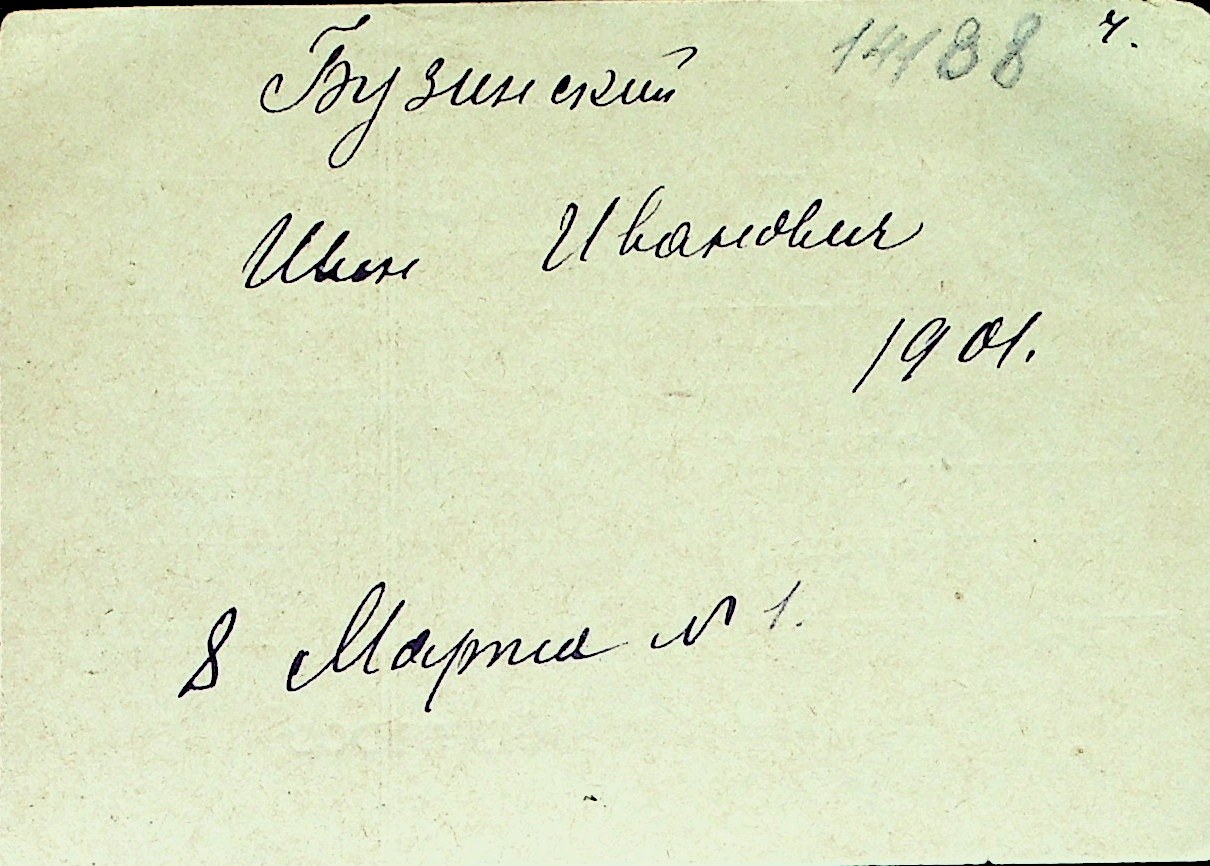 Бузинский
ч.
Иван Иванович
1901.
8 Марта № 1.